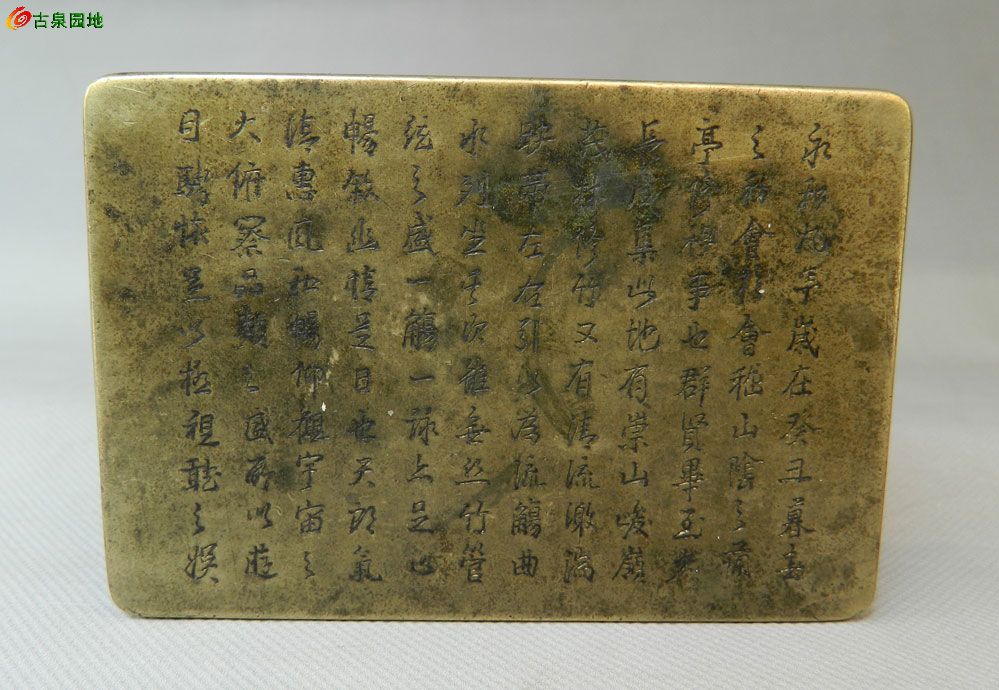 古泉园地
永和九年歲在癸丑暮春
之初會於會稽山陰之蘭
亭脩禊事也群賢畢至少
長咸集此地有崇山峻嶺
茂林脩竹又有清流激湍
映帶左右引以為流觴曲
水列坐其次雖無絲竹管
弦之盛一觴一詠亦足以
暢敘幽情是日也天朗氣
清惠風和暢仰觀宇宙之
大俯察品類之盛所以遊
目騁懷足以極視聽之娛